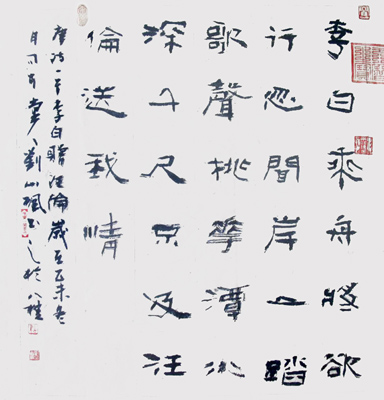 李白乘舟將欲
行忽聞岸上踏
歌聲桃華潭水
深千尺不及汪
倫送我情
唐詩一首李白贈汪倫歲在乙未冬
月劉書之於八桂